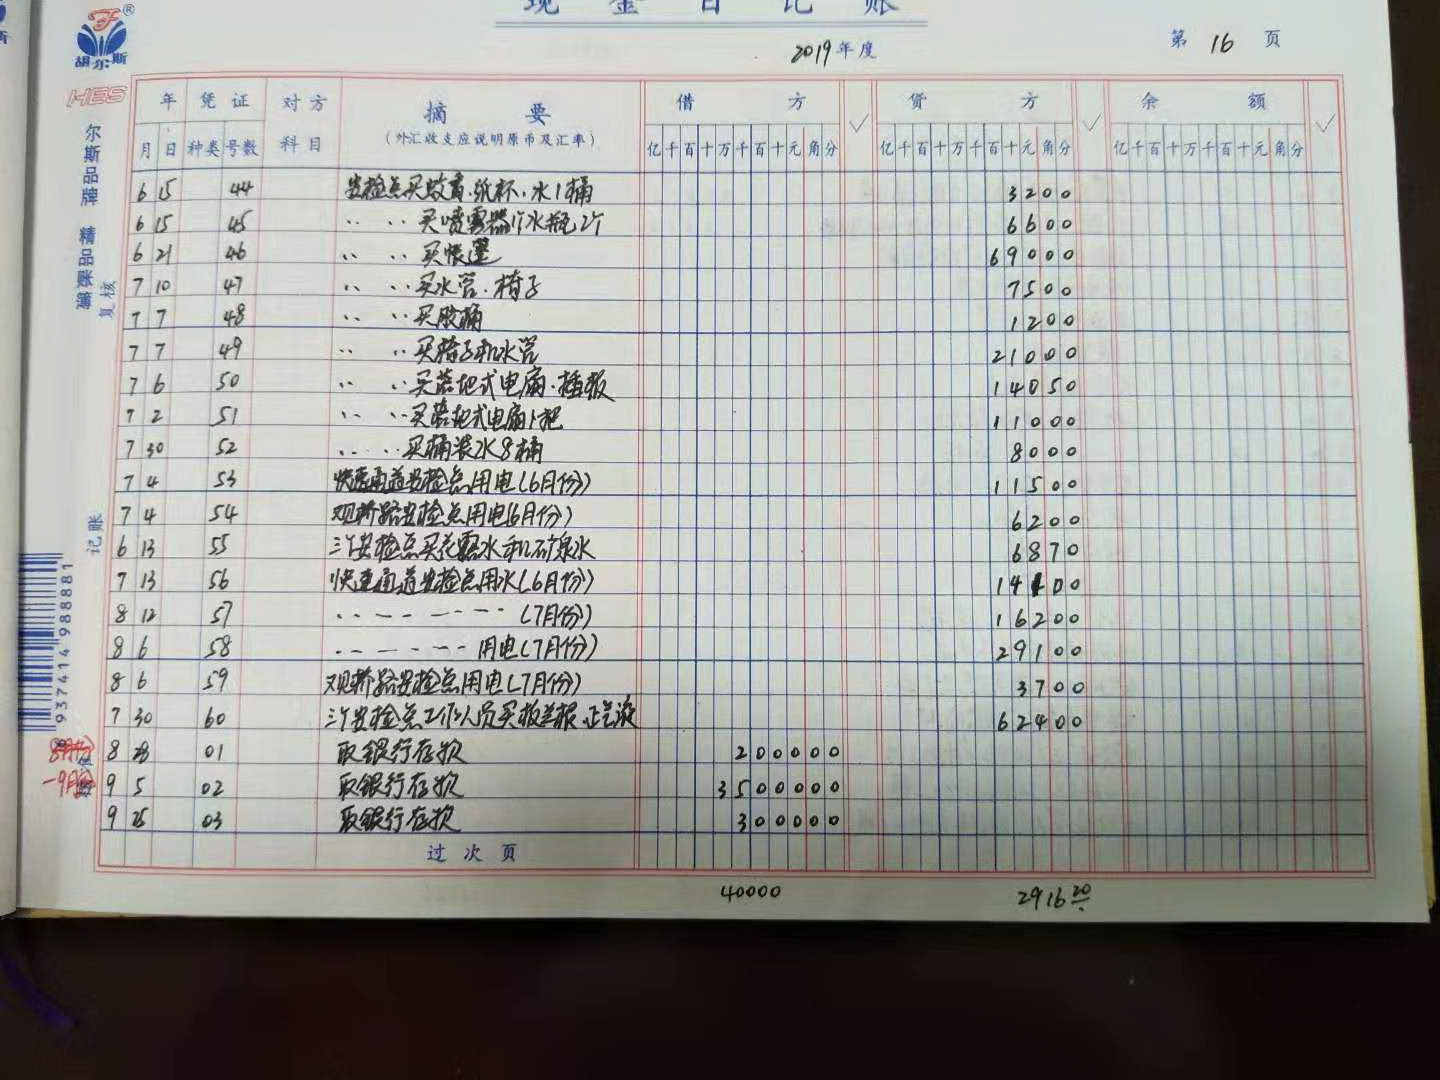 现金日记账
2019年度
第 16 页
胡尔斯
HES
尔斯品牌 精品账簿
复核
记账
9 937414 988881
年 凭证 对方 摘要 借方 贷方 余额
月 日 种类 号数 科目 (外汇收支应说明原币及汇率) 亿千百十万千百十元角分 亿千百十万千百十元角分 亿千百十万千百十元角分
6 15 44 安检点买蚊香.纸杯.水1桶 3200
6 15 45 〃 〃买喷雾器1个水瓶2个 6600
6 21 46 〃 〃买帐篷 69000
7 10 47 〃 〃买水管.椅子 7500
7 7 48 〃 〃买胶桶 1200
7 7 49 〃 〃买椅子和水管 21000
7 6 50 〃 〃买落地式电扇.插板 14050
7 2 51 〃 〃买落地式电扇1把 11000
7 30 52 〃 〃买桶装水8桶 8000
7 4 53 快速通道安检点用电(6月份) 11500
7 4 54 观桥路安检点用电(6月份) 6200
6 13 55 三个安检点买花露水和矿泉水 6870
7 13 56 快速通道安检点用水(6月份) 14100
8 12 57 〃 〃 (7月份) 16200
8 6 58 〃 〃 用电(7月份) 29100
8 6 59 观桥路安检点用电(7月份) 3700
7 30 60 三个安检点工作人员买板兰根.正气液 62400
8 28 01 取银行存款 200000
9 5 02 取银行存款 3500000
9 25 03 取银行存款 300000
-9月份
过次页
40000 2916.20